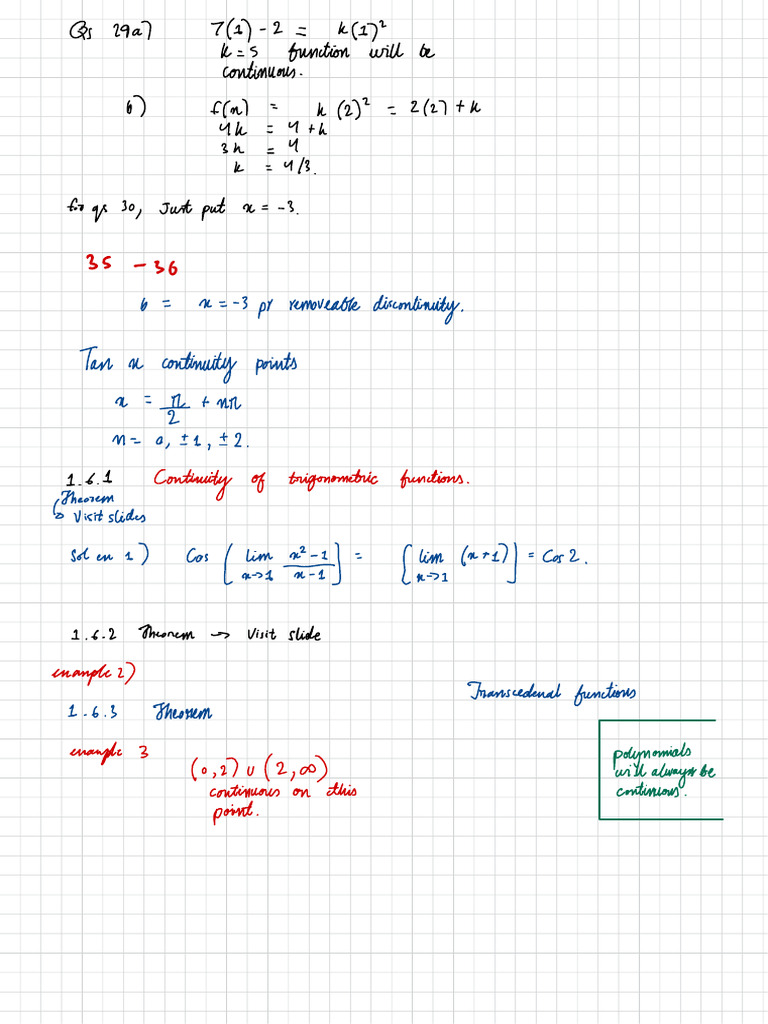 Qs 29a) 7(1) - 2 = k(1)²
k = 5 function will be
continuous.
b) f(x) = k(2)² = 2(2) + k
4k = 4 + k
3k = 4
k = 4/3.
for qs 30, Just put x = -3.
35 - 36
b = x = -3 pr removeable discontinuity.
Tan x continuity points
x = π/2 + nπ
n = 0, ±1, ±2.
1.6.1 Continuity of trigonometric functions.
Theorem
Visit slides
Sol ex 1) Cos [lim x→1 x²-1/x-1] = [lim x→1 (x+1)] = Cos 2.
1.6.2 Theorem → Visit slide
example 2)
Transcedenal functions
1.6.3 Theorem
example 3
(0,2) ∪ (2,∞)
continuous on this
point.
polynomials
will always be
continuous.